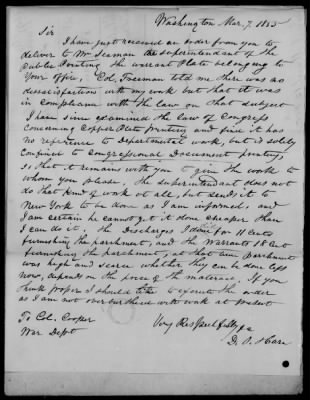 Washington Mar, 7. 1855
Sir
I have just received an order from you to
deliver to Mr Seaman the superintendent of the
Public Printing the warrant Plate belonging to
Your office, Col. Freeman told me there was no
dissatisfaction with my work but that it was
in compliance with the law on that subject
I have since examined the law of Congress
concerning Copper Plate Printing and find it has
no reference to Departmental work, but is solely
confined to Congressional Document printing,
so that it remains with you to give the work to
whom you please, the superintendent does not
do that kind of work at all, but sends it to
New York to be done as I am informed, and
I am certain he cannot get it done cheaper than
I can do it, the Discharges I did for 11 Cents
furnishing the parchment, and the Warrants 18 Cents
furnishing the parchment, at that time parchment
was high and scarce whether they can be done less
now, depends on the price of the material, If you
think proper I should like to execute the order
as I am not over burthened with work at present
To Col. Cooper
War Dept
Very Respectfully
D. O. Hare